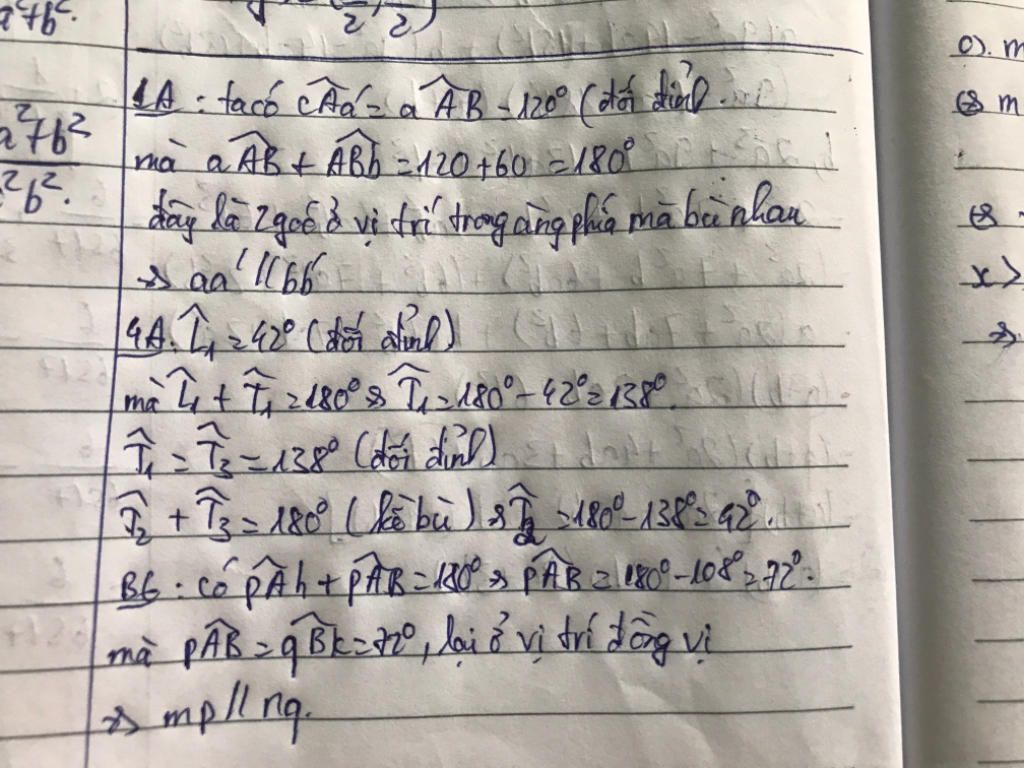 a²+b².
2, 2)
a²+b²
²b².
1A : ta có cÂa' = aÂB = 120° (đối đỉnh.
mà aÂB + ABb = 120 + 60 = 180°
đây là 2 góc ở vị trí trong cùng phía mà bù nhau
=> aa' // bb'
4A. L̂₁ = 42° (đối đỉnh)
mà L̂₁ + T̂₁ = 180° => T̂₁ = 180° - 42° = 138°.
T̂₁ = T̂₃ = 138° (đối đỉnh)
T̂₂ + T̂₃ = 180° (kề bù) => T̂₂ = 180° - 138° = 42°.
B6 : có pÂh + pÂB = 180° => pÂB = 180° - 108° = 72°.
mà pÂB = qB̂k = 72°, lại ở vị trí đồng vị
=> mp // nq.
c). m
<=> m
<=>
x >
=>